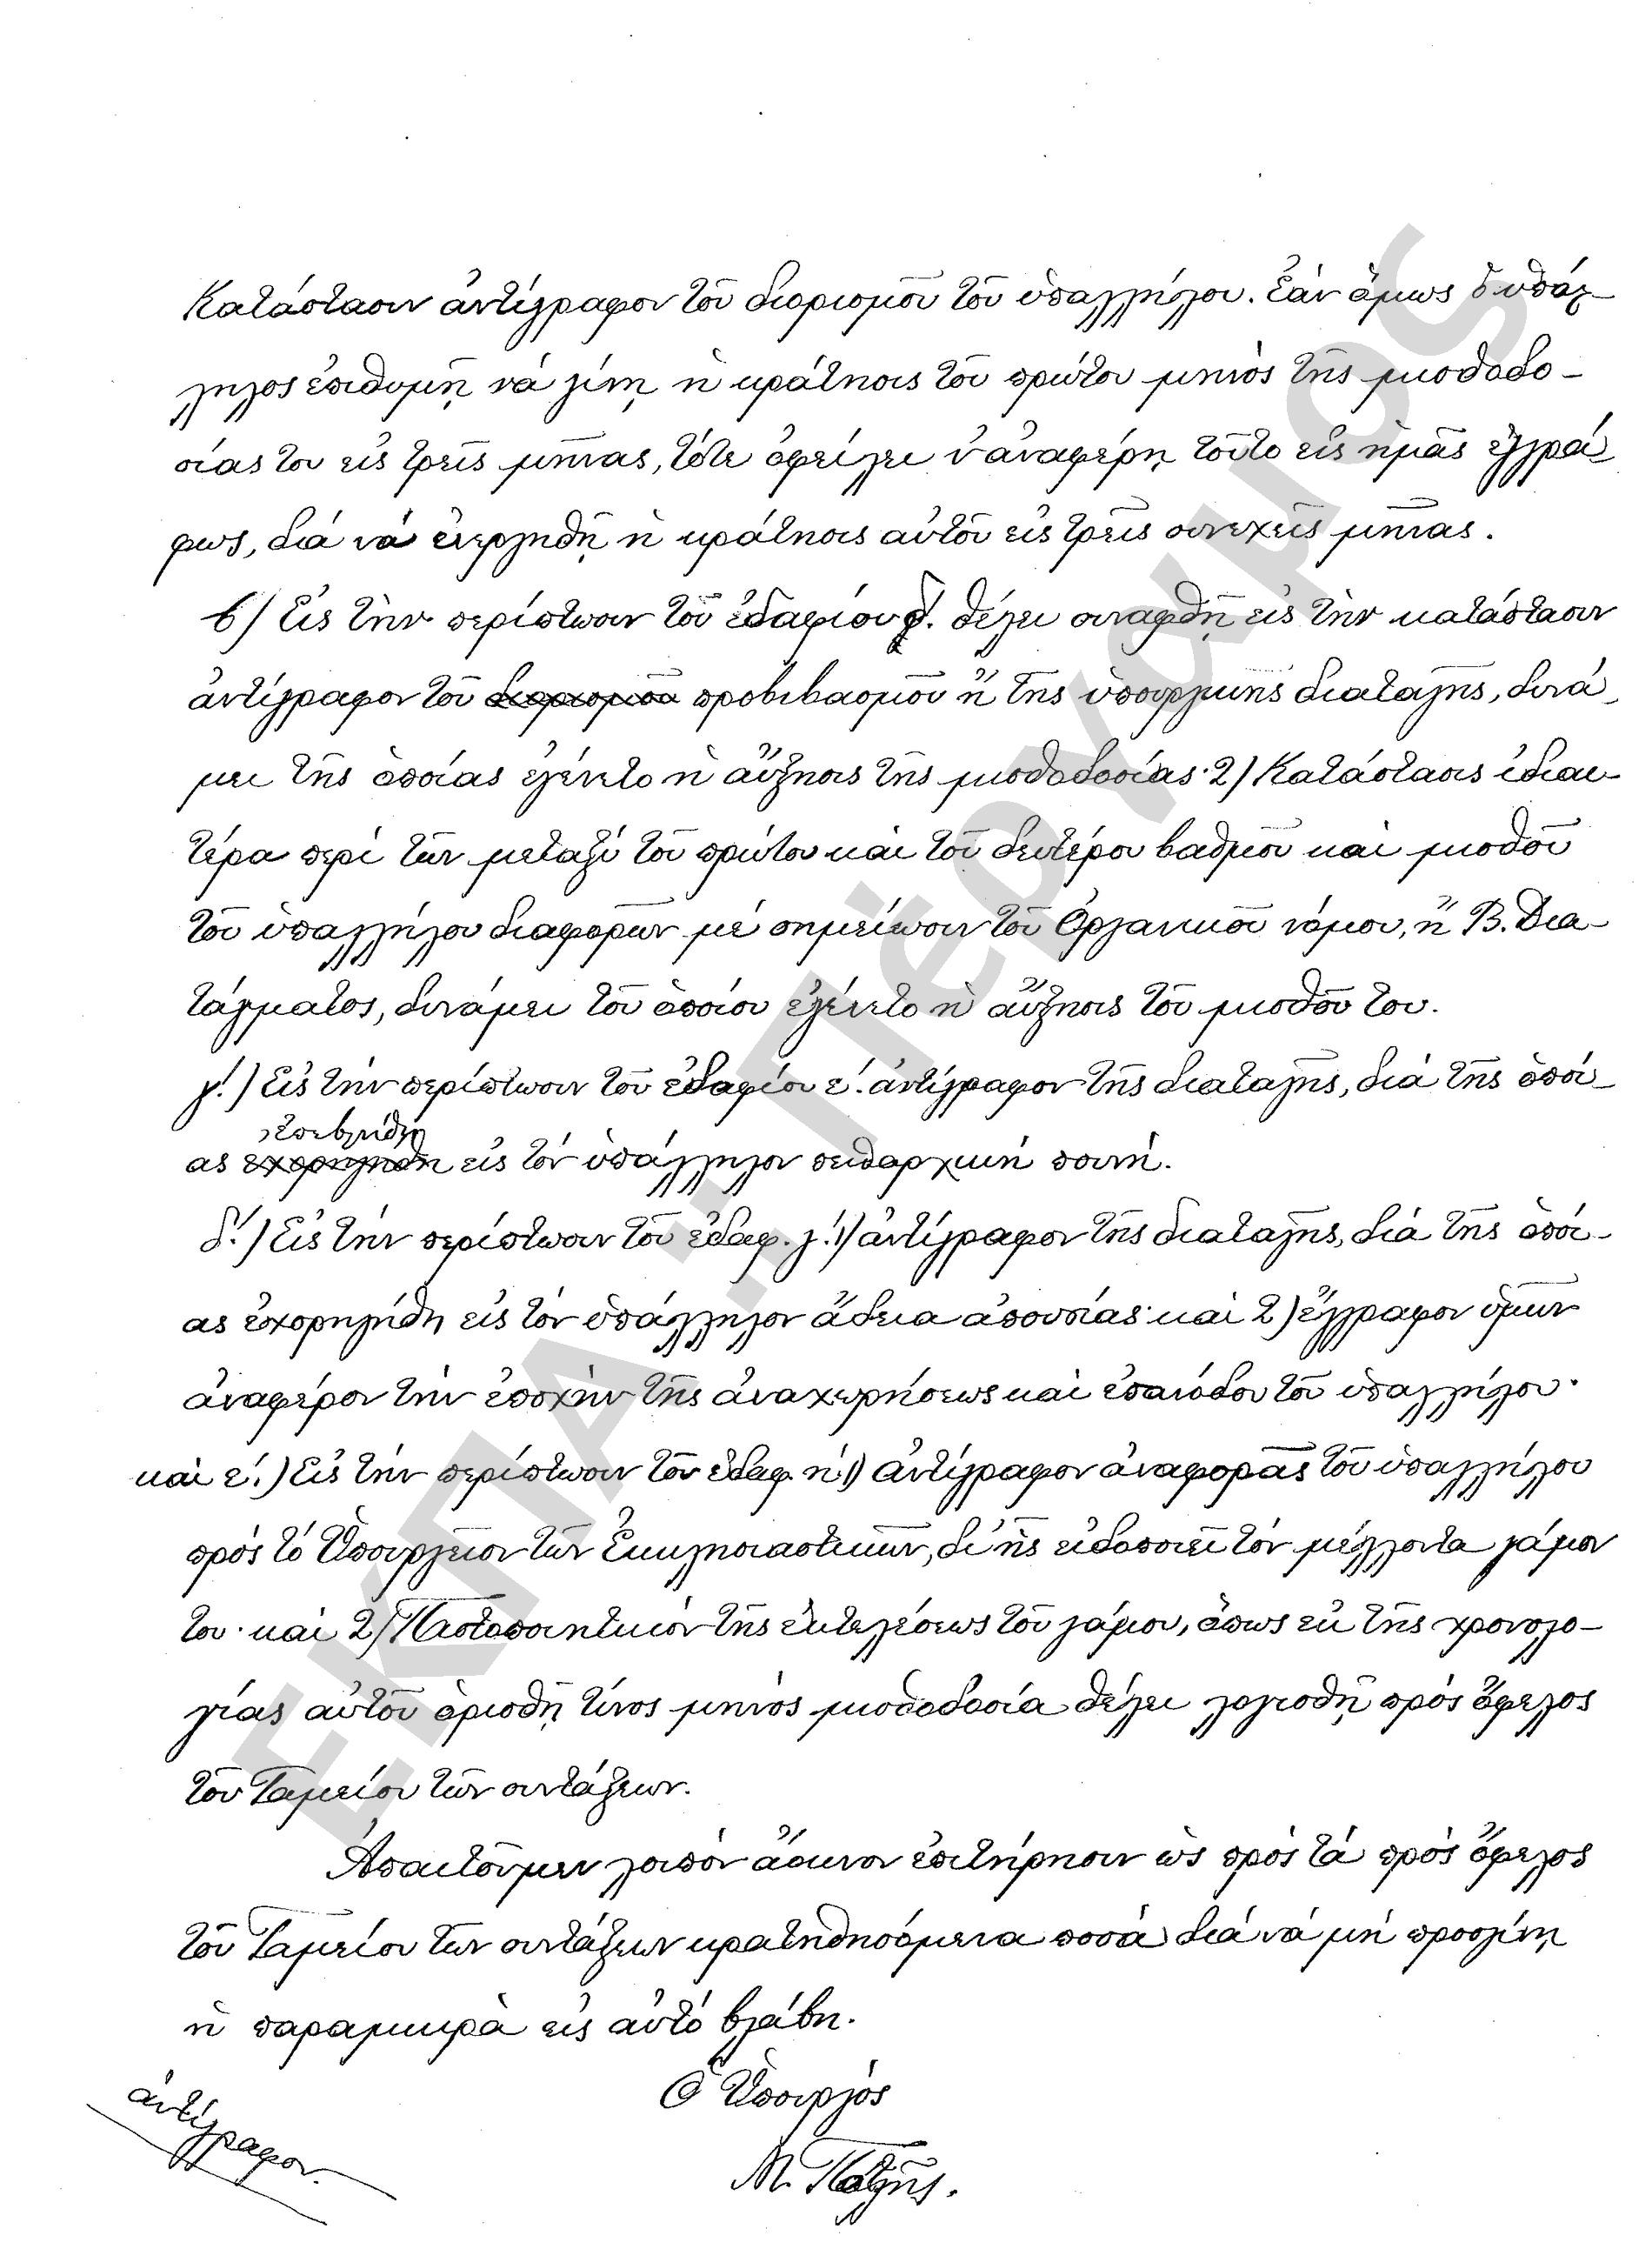 Κατάστασιν ἀντίγραφον τοῦ διορισμοῦ τοῦ ὑπαλλήλου. Ἐὰν ὅμως ὁ ὑπάλ-
ληλος ἐπιθυμῇ νὰ γίνῃ ἡ κράτησις τοῦ πρώτου μηνὸς τῆς μισθοδο-
σίας του εἰς τρεῖς μῆνας, τότε ὀφείλει ν' ἀναφέρῃ τοῦτο εἰς ἡμᾶς ἐγγρά-
φως, διὰ νὰ ἐνεργηθῇ ἡ κράτησις αὐτοῦ εἰς τρεῖς συνεχεῖς μῆνας.
β) Εἰς τὴν περίπτωσιν τοῦ ἐδαφίου δ. θέλει συναφθῇ εἰς τὴν κατάστασιν
ἀντίγραφον τοῦ διορισμοῦ προβιβασμοῦ ἢ τῆς ὑπουργικῆς διαταγῆς, δυνά-
μει τῆς ὁποίας ἐγένετο ἡ αὔξησις τῆς μισθοδοσίας· 2) Κατάστασις ἰδιαι-
τέρα περὶ τῶν μεταξὺ τοῦ πρώτου καὶ τοῦ δευτέρου βαθμοῦ καὶ μισθοῦ
τοῦ ὑπαλλήλου διαφορῶν μὲ σημείωσιν τοῦ Ὀργανικοῦ νόμου, ἢ Β. Δια-
τάγματος, δυνάμει τοῦ ὁποίου ἐγένετο ἡ αὔξησις τοῦ μισθοῦ του.
γ'.) Εἰς τὴν περίπτωσιν τοῦ ἐδαφίου ε'. ἀντίγραφον τῆς διαταγῆς, διὰ τῆς ὁποί-
ἐπεβλήθη
ας ἐχορηγήθη εἰς τὸν ὑπάλληλον πειθαρχικὴ ποινή.
δ'.) Εἰς τὴν περίπτωσιν τοῦ ἐδαφ. γ'. 1) ἀντίγραφον τῆς διαταγῆς, διὰ τῆς ὁποί-
ας ἐχορηγήθη εἰς τὸν ὑπάλληλον ἄδεια ἀπουσίας· καὶ 2) ἔγγραφον ὑμῶν
ἀναφέρον τὴν ἐποχὴν τῆς ἀναχωρήσεως καὶ ἐπανόδου τοῦ ὑπαλλήλου·
καὶ ε'.) Εἰς τὴν περίπτωσιν τοῦ ἐδαφ. η' 1) ἀντίγραφον ἀναφορᾶς τοῦ ὑπαλλήλου
πρὸς τὸ Ὑπουργεῖον τῶν Ἐκκλησιαστικῶν, δι' ἧς εἰδοποιεῖ τὸν μέλλοντα γάμον
του· καὶ 2) Πιστοποιητικὸν τῆς ἐκτελέσεως τοῦ γάμου, ὅπως ἐκ τῆς χρονολο-
γίας αὐτοῦ ὁρισθῇ τίνος μηνὸς μισθοδοσία θέλει λογισθῇ πρὸς ὄφελος
τοῦ Ταμείου τῶν συντάξεων.
Ἀπαιτοῦμεν λοιπὸν ἄοκνον ἐπιτήρησιν ὡς πρὸς τὰ πρὸς ὄφελος
τοῦ Ταμείου τῶν συντάξεων κρατηθησόμενα ποσὰ διὰ νὰ μὴ προσγίνῃ
ἡ παραμικρὰ εἰς αὐτὸ βλάβη.
Ὁ Ὑπουργὸς
Μ. Ποτλῆς.
ἀντίγραφον.
ΕΚΠΑ - "Πέργαμος